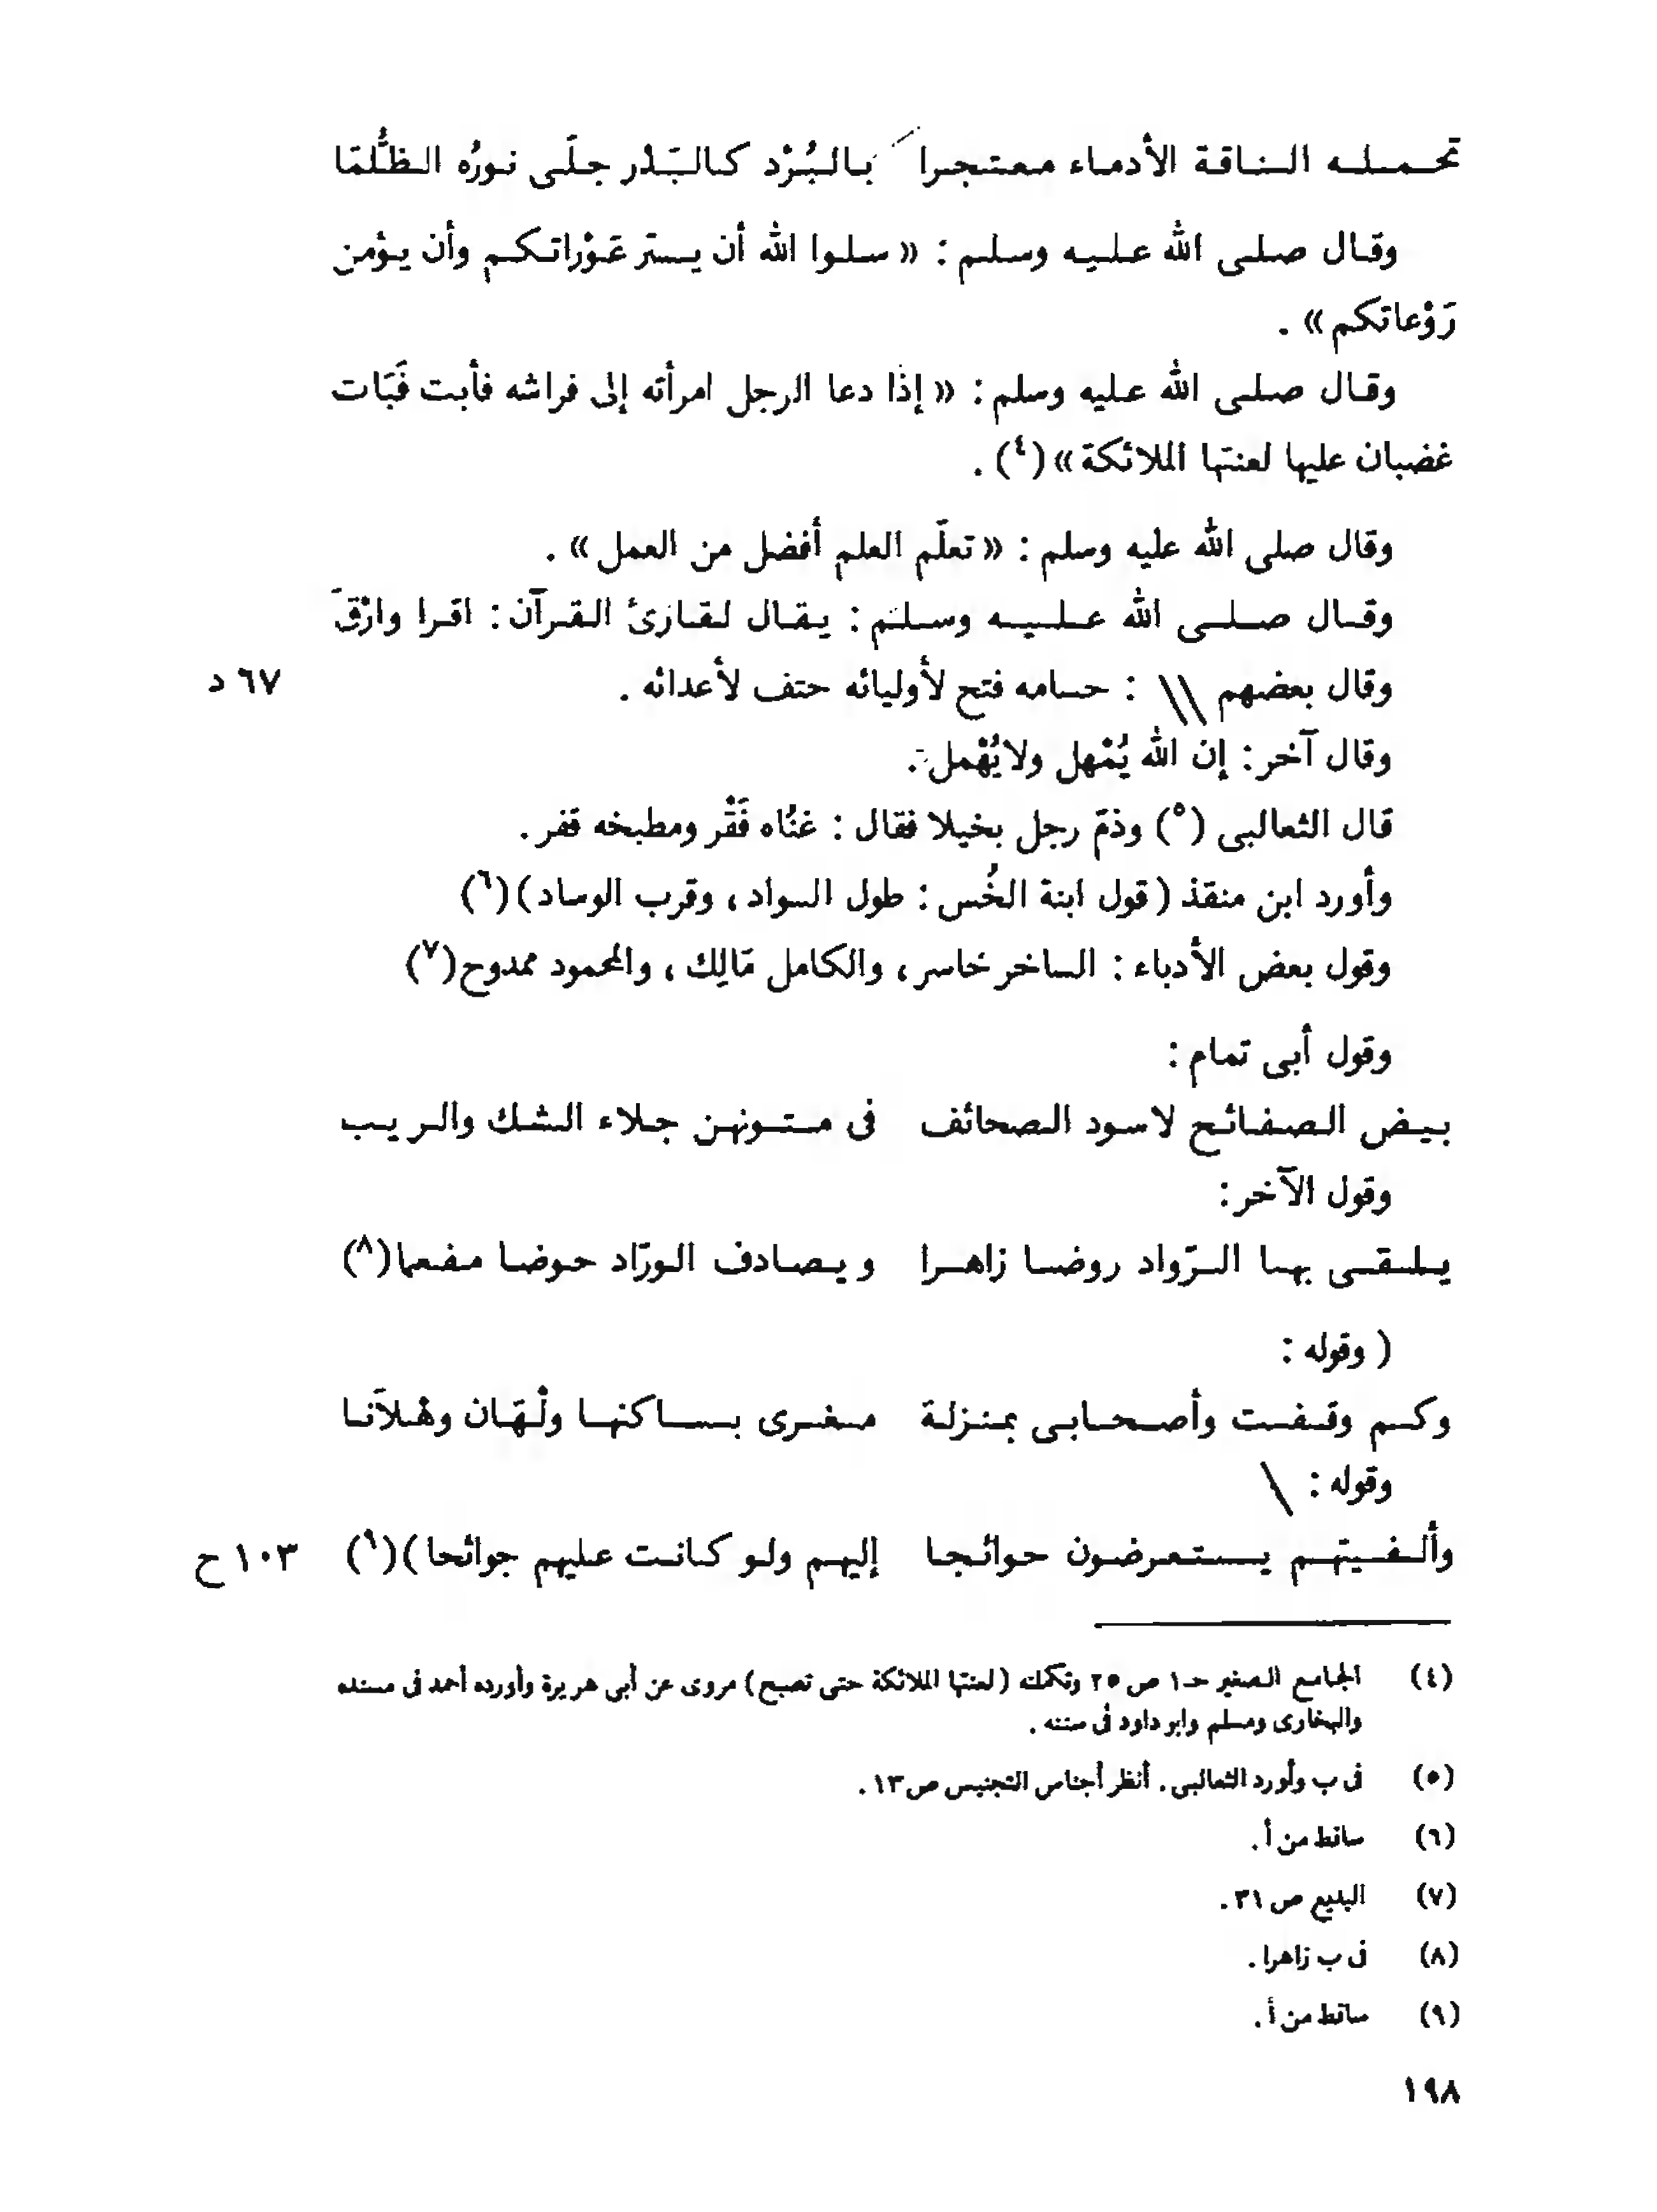 تحمله الناقة الأدماء معتجرا بالبُرْد كالبَدْر جلَّى نورُه الظُّلمَا
وقال صلى الله عليه وسلم : « سلوا الله أن يستر عَوْراتكم وأن يؤمن
رَوْعاتكم » .
وقال صلى الله عليه وسلم : « إذا دعا الرجل امرأته إلى فراشه فأبت فَبَات
غضبان عليها لعنتها الملائكة » (٤) .
وقال صلى الله عليه وسلم : « تعلّم العلم أفضل من العمل » .
وقال صلى الله عليه وسلم : يقال لقارئ القرآن : اقرا وارْقَ
وقال بعضهم \\ : حسامه فتح لأوليائه حتف لأعدائه . ٦٧ د
وقال آخر : إن الله يُمْهل ولا يُهْمل .
قال الثعالبى (٥) وذمّ رجل بخيلا فقال : غنَاه فَقْر ومطبخه قفر .
وأورد ابن منقذ ( قول ابنة الخُس : طول السواد ، وقرب الوساد ) (٦)
وقول بعض الأدباء : الساخر خاسر ، والكامل مَالِك ، والمحمود ممدوح (٧)
وقول أبى تمام :
بيض الصفائح لاسود الصحائف فى متونهن جلاء الشك والريب
وقول الآخر :
يلقى بها الرّواد روضا زاهرا ويصادف الورّاد حوضا مفعما (٨)
( وقوله :
وكم وقفت وأصحابى بمنزلة مغرى بساكنها ولْهَان وهْلاَنا
وقوله : \
وألفيتهم يستعرضون حوائجا إليهم ولو كانت عليهم جوائحا ) (٩) ١٠٣ ح
(٤) الجامع الصغير حـ ١ ص ٢٥ وتكملته ( لعنتها الملائكة حتى تصبح ) مروى عن أبى هريرة وأورده أحمد فى مسنده
والبخارى ومسلم وابو داود فى سننه .
(٥) فى ب وأورد الثعالبى . أنظر أجناس التجنيس ص ١٣ .
(٦) ساقط من أ .
(٧) البديع ص ٣١ .
(٨) فى ب زاهرا .
(٩) ساقط من أ .
١٩٨